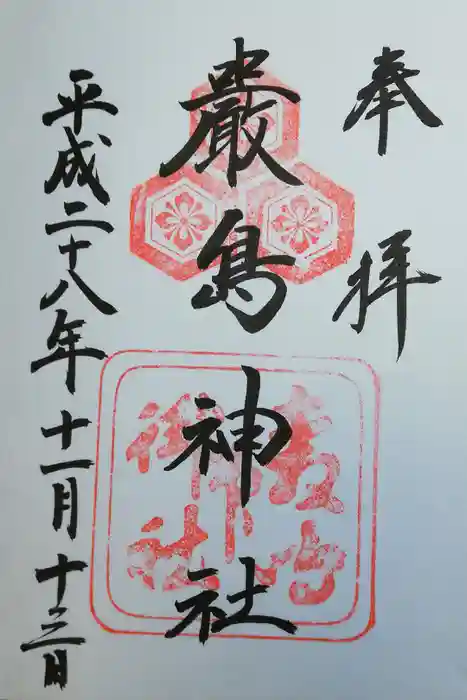 奉拝
厳島神社
平成二十八年十一月十三日